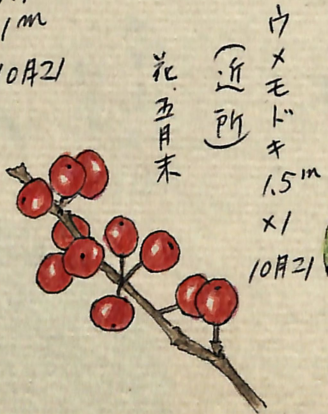 ウメモドキ
1.5m
×1
10月21
(近所)
花.五月末
1m
10月21